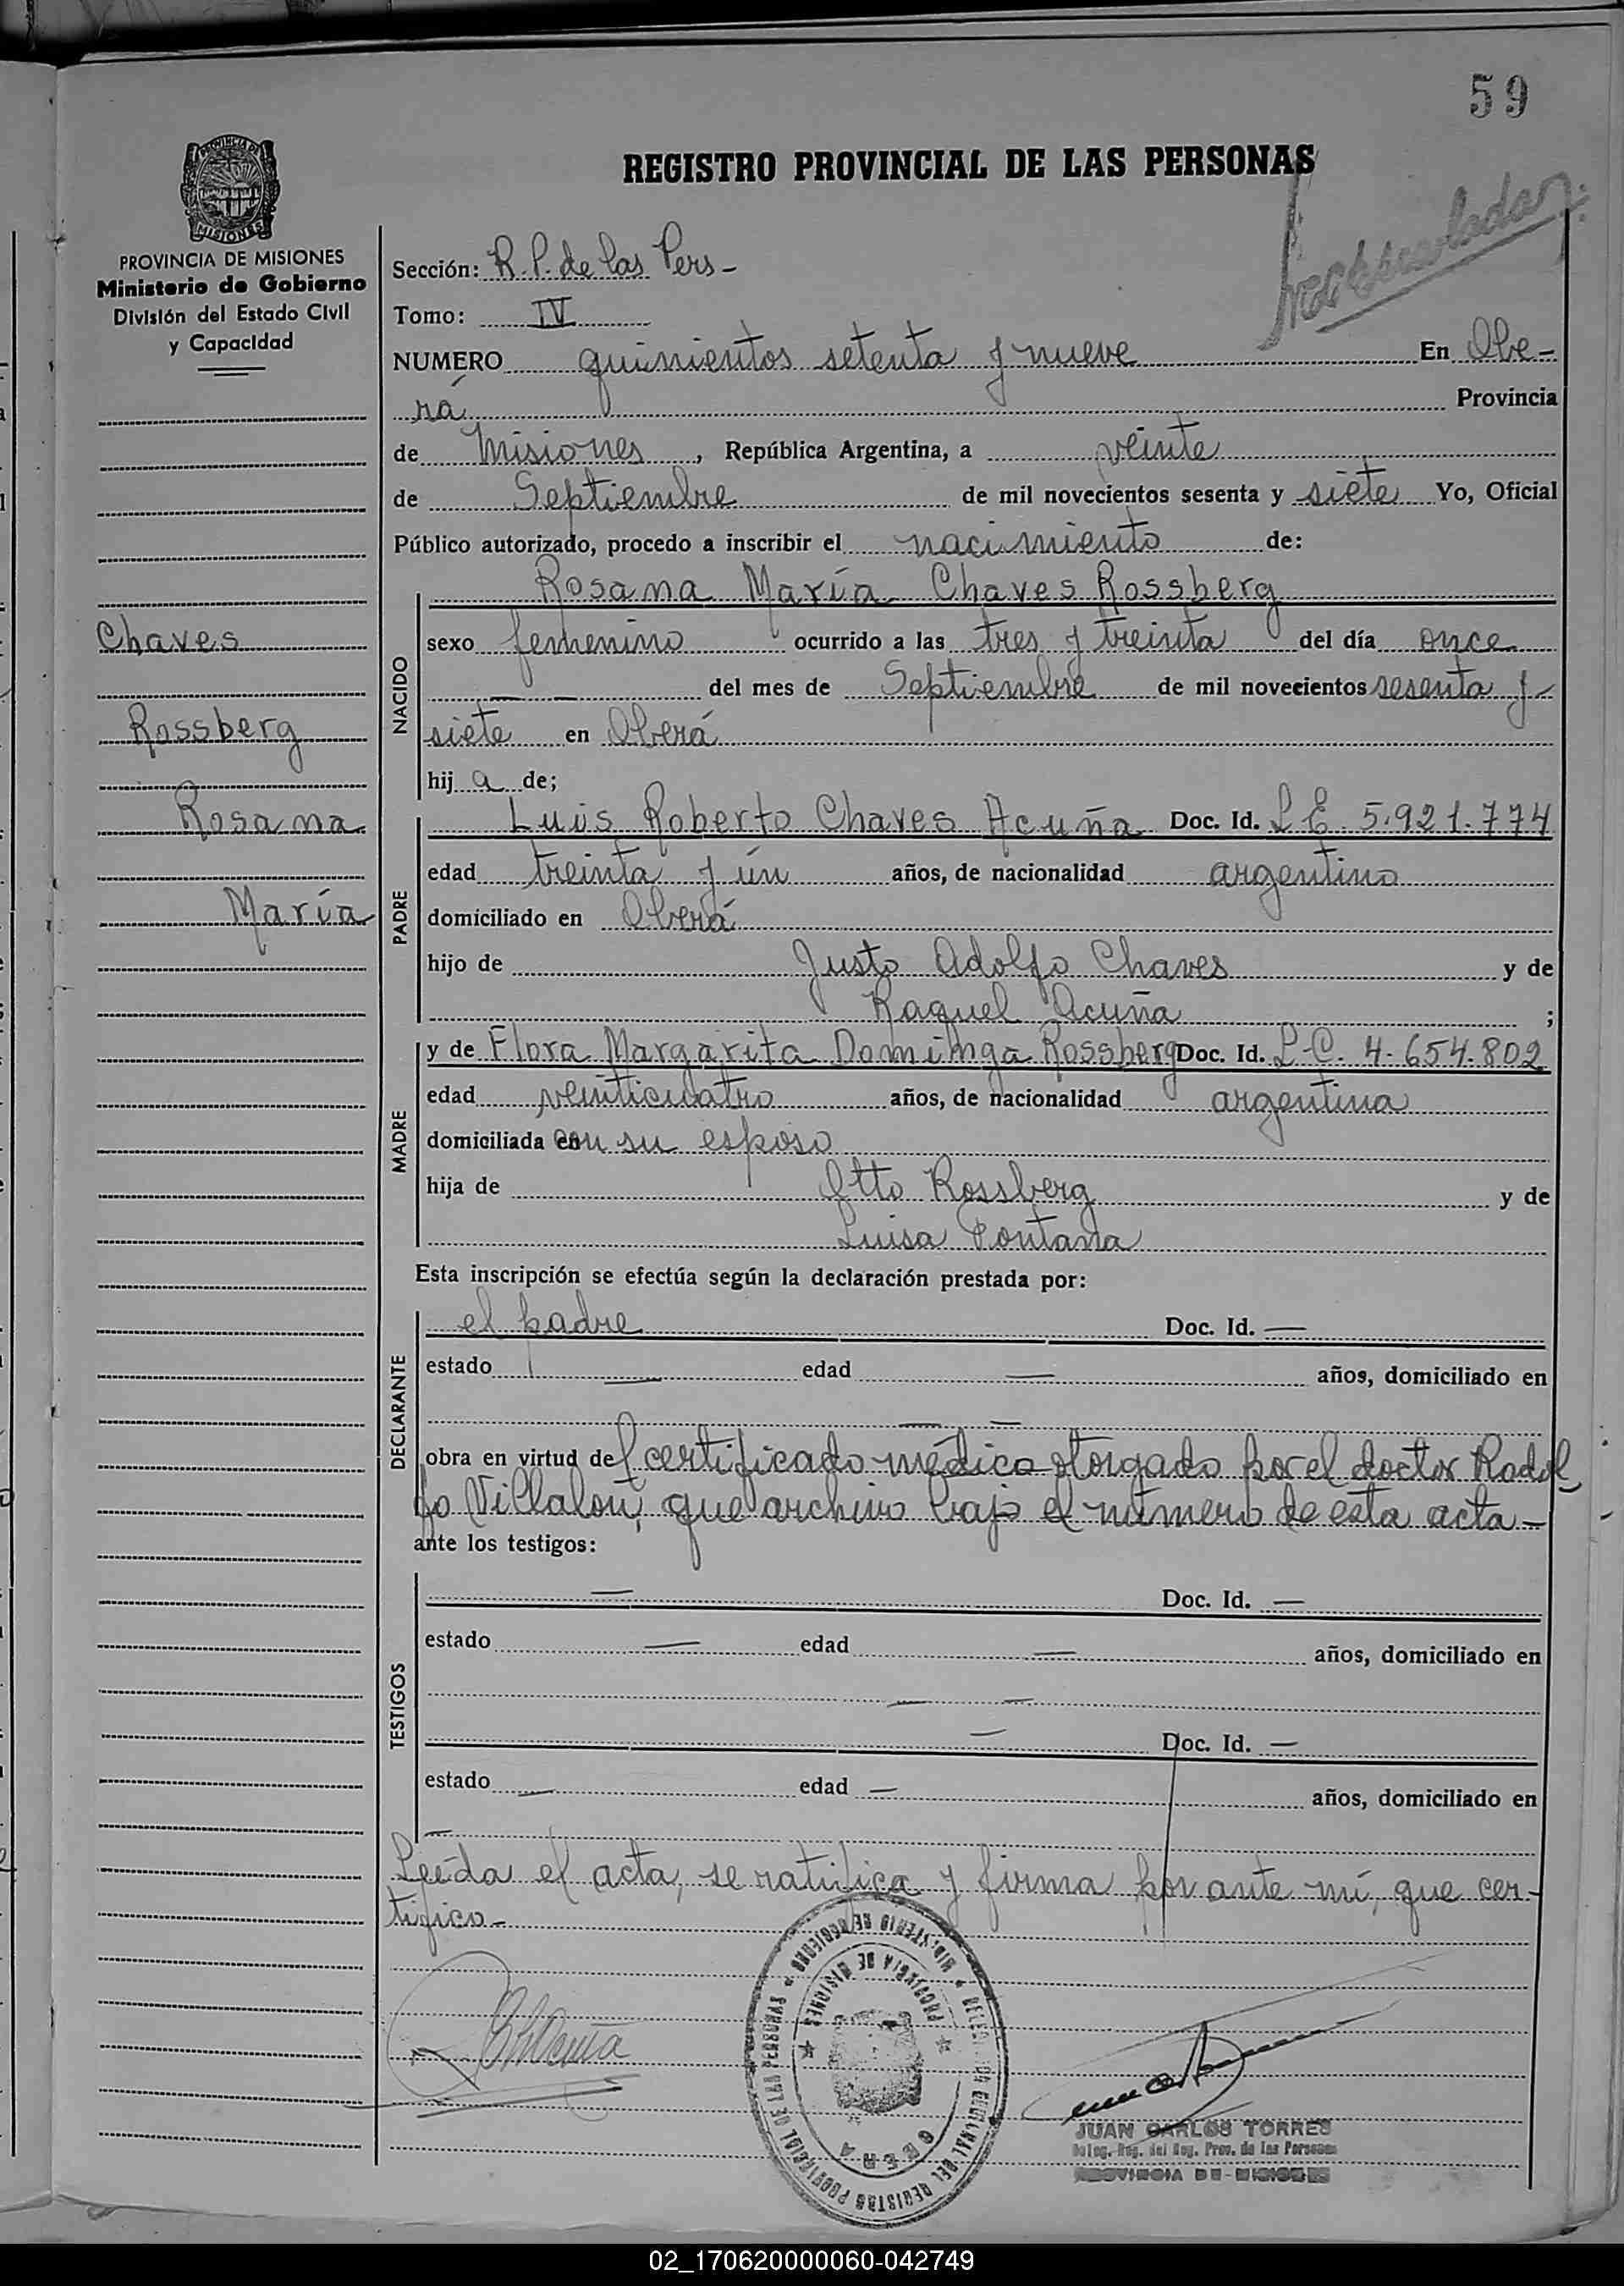 59
REGISTRO PROVINCIAL DE LAS PERSONAS
PROVINCIA DE
MISIONES
PROVINCIA DE MISIONES
Ministerio de Gobierno
División del Estado Civil
y Capacidad
Chaves
Rossberg
Rosana
María
Sección: R.P. de las Pers-
Tomo: IV
NUMERO quinientos setenta y nueve En Obe-
rá Provincia
de Misiones, República Argentina, a veinte
de Septiembre de mil novecientos sesenta y siete Yo, Oficial
Público autorizado, procedo a inscribir el nacimiento de:
NACIDO
Rosana María Chaves Rossberg
sexo femenino ocurrido a las tres y treinta del día once
— — del mes de Septiembre de mil novecientos sesenta y
siete en Oberá
hij a de;
PADRE
Luis Roberto Chaves Acuña Doc. Id. L E 5.921.774
edad treinta y ún años, de nacionalidad argentino
domiciliado en Oberá
hijo de Justo Adolfo Chaves y de
Raquel Acuña ;
MADRE
y de Flora Margarita Dominga Rossberg Doc. Id. L.C. 4.654.802
edad veinticuatro años, de nacionalidad argentina
domiciliada con su esposo
hija de Otto Rossberg y de
Luisa Fontana
Esta inscripción se efectúa según la declaración prestada por:
DECLARANTE
el padre Doc. Id. —
estado — edad — años, domiciliado en
— —
obra en virtud del certificado médico otorgado por el doctor Rodol
fo Villalon, que archivo bajo el número de esta acta —
ante los testigos:
TESTIGOS
— Doc. Id. —
estado — edad — años, domiciliado en
— —
— Doc. Id. —
estado — edad — años, domiciliado en
—
Leída el acta, se ratifica y firma por ante mí, que cer-
tifico-
MINISTERIO DE GOBIERNO
PROVINCIA DE MISIONES
REGISTRO PROVINCIAL DE LAS PERSONAS
OBERA
JUAN CARLOS TORRES
Deleg. Reg. del Reg. Prov. de las Personas
PROVINCIA DE MISIONES
02_170620000060-042749